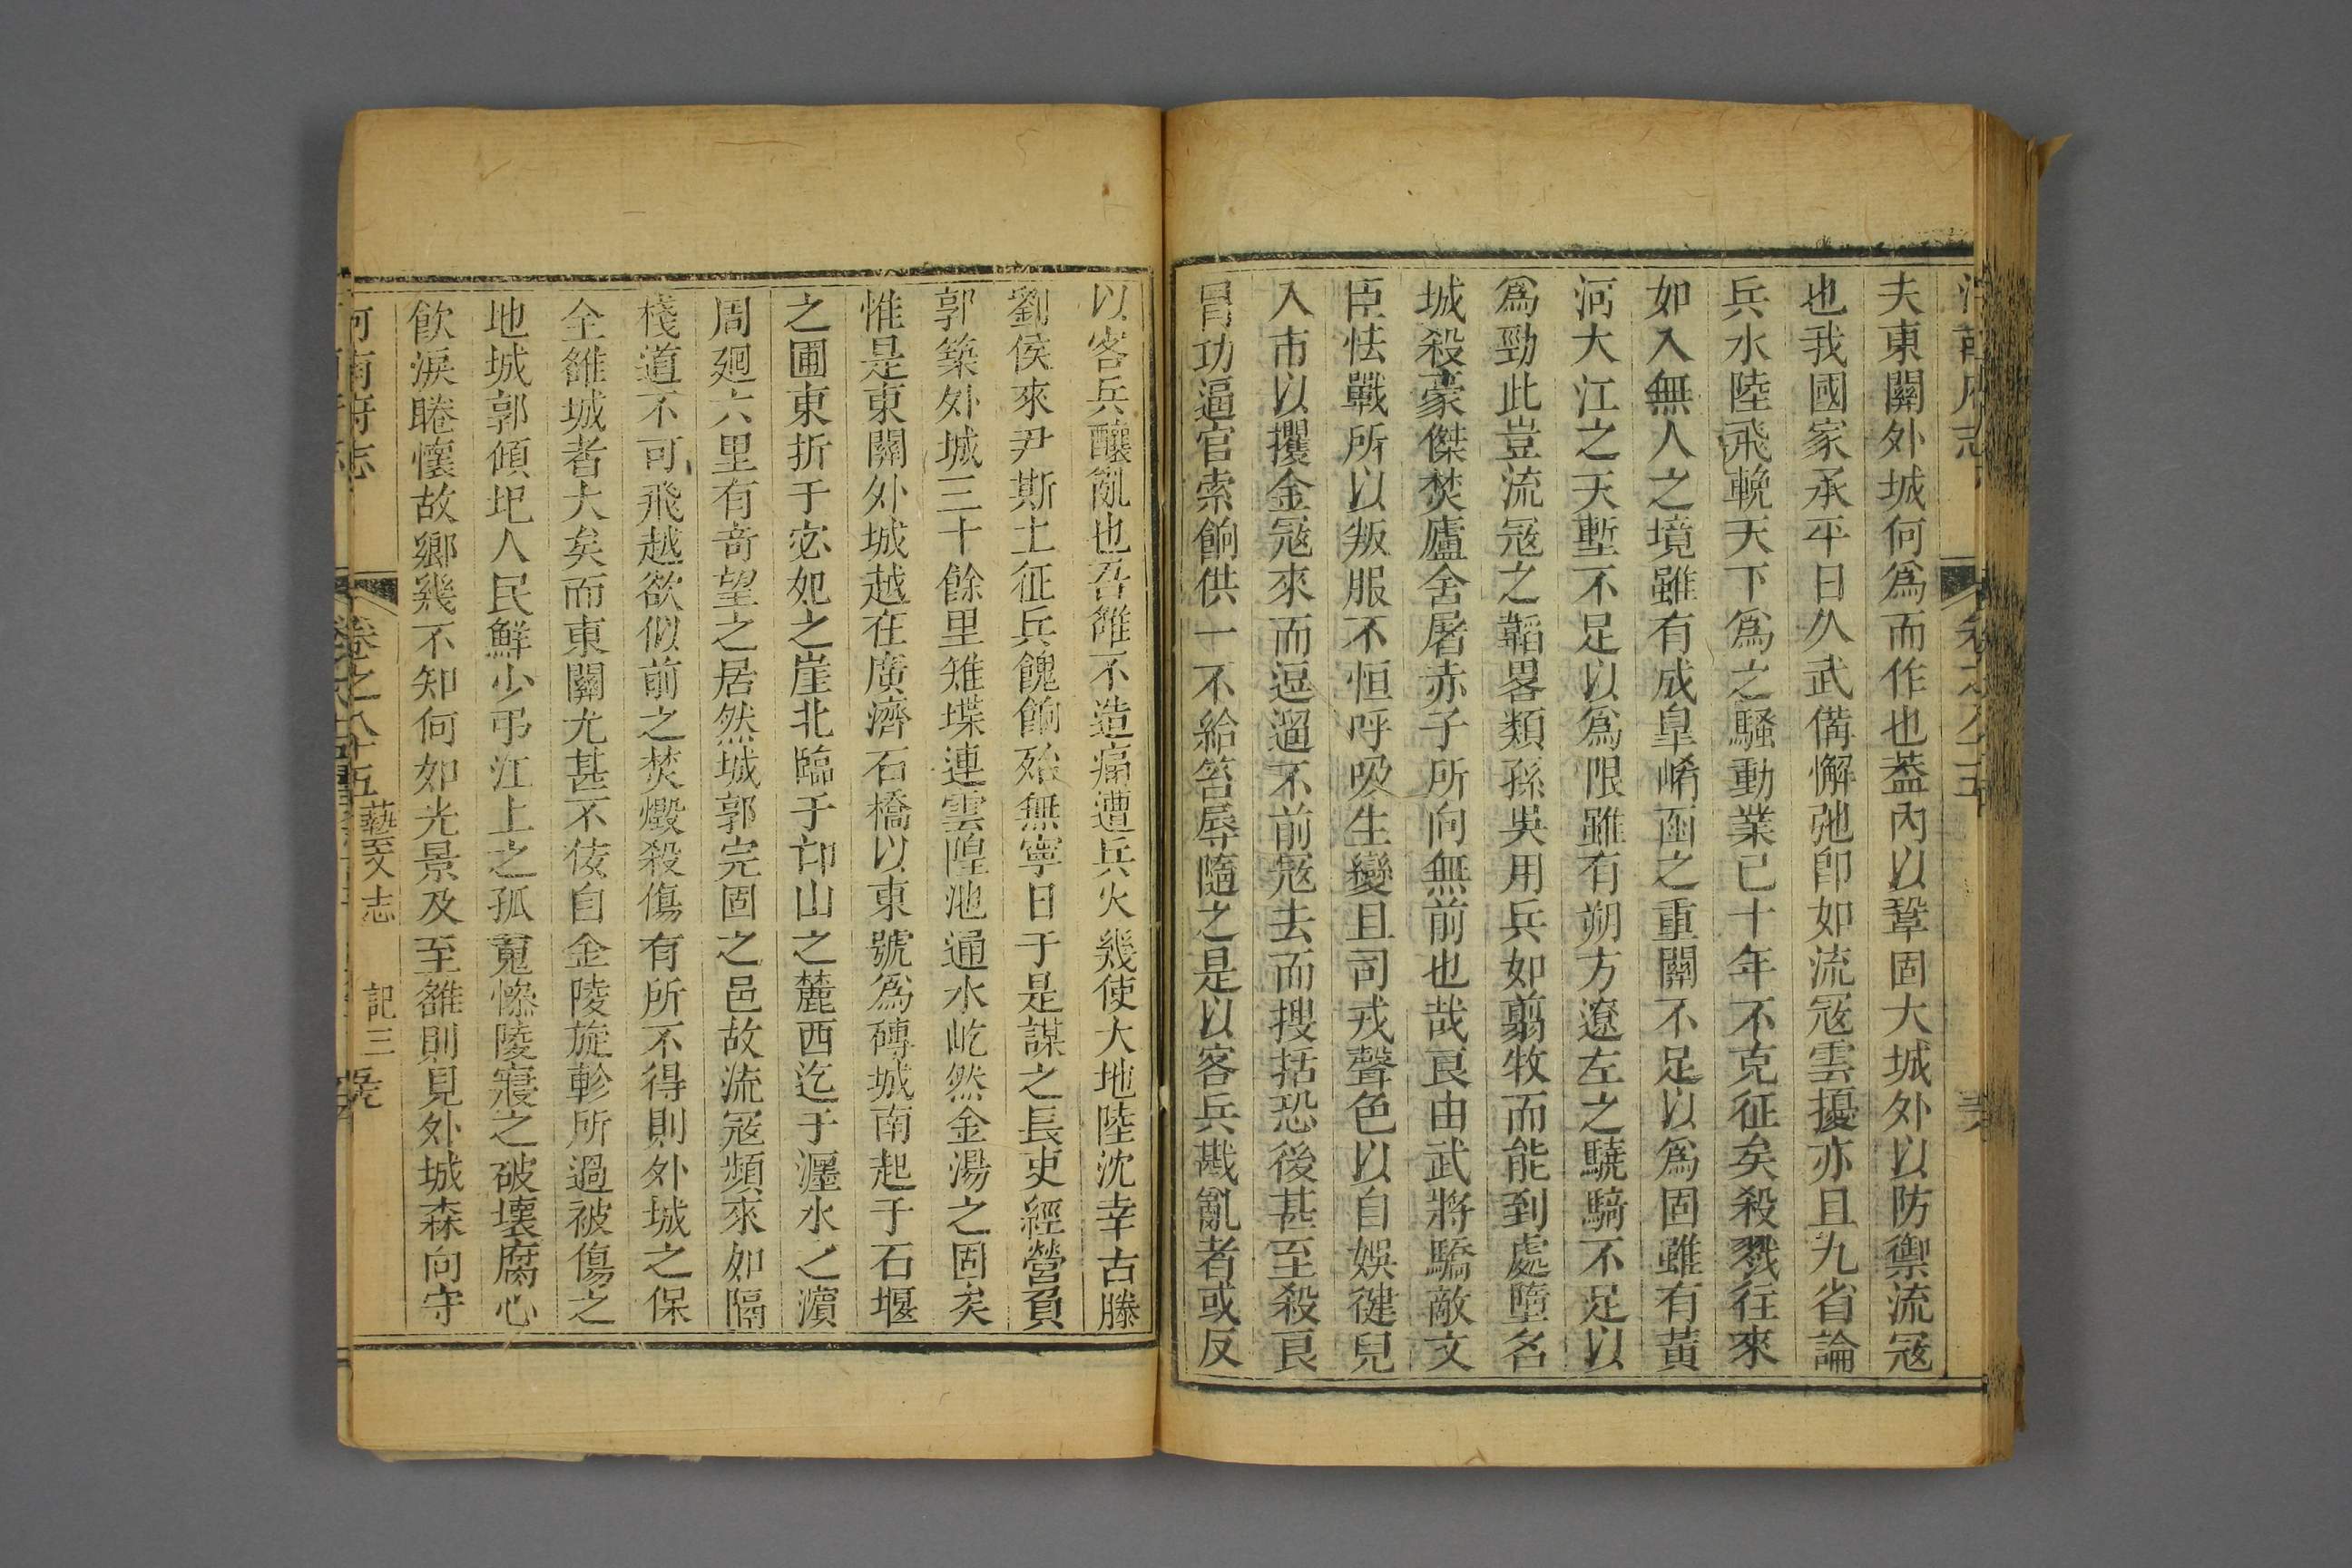 夫東關外城何爲而作也葢內以鞏固大城外以防禦流冦
也我國家承平日久武備懈弛卽如流冦雲擾亦且九省論
兵水陸飛輓天下爲之騷動業已十年不克征矣殺戮往來
如入無人之境雖有成皐崤凾之重關不足以爲固雖有黃
河大江之天塹不足以爲限雖有朔方遼左之驍騎不足以
爲勁此豈流冦之韜畧類孫吳用兵如翦牧而能到處墮名
城殺豪傑焚廬舍屠赤子所向無前也哉良由武將驕敵文
臣怯戰所以叛服不恒呼吸生變且司戎聲色以自娛健兒
入市以攫金冦來而逗遛不前冦去而搜括恐後甚至殺良
冒功逼官索餉供一不給笞辱隨之是以客兵戡亂者或反
以客兵釀亂也吾雒不造痛遭兵火幾使大地陸沈幸古滕
劉侯來尹斯土征兵餽餉殆無寧日于是謀之長吏經營負
郭築外城三十餘里雉堞連雲隍池通水屹然金湯之固矣
惟是東關外城越在廣濟石橋以東號爲磚城南起于石堰
之圃東折于宓妃之崖北臨于邙山之麓西迄于瀍水之濵
周廻六里有奇望之居然城郭完固之邑故流冦頻來如隔
棧道不可飛越欲似前之焚燬殺傷有所不得則外城之保
全雒城者大矣而東關尤甚不佞自金陵旋軫所過被傷之
地城郭傾圯人民鮮少弔江上之孤蒐慘陵寢之破壞腐心
飮淚睠懷故鄉幾不知何如光景及至雒則見外城森向守
河南府志 卷之八十五 藝文志 記三